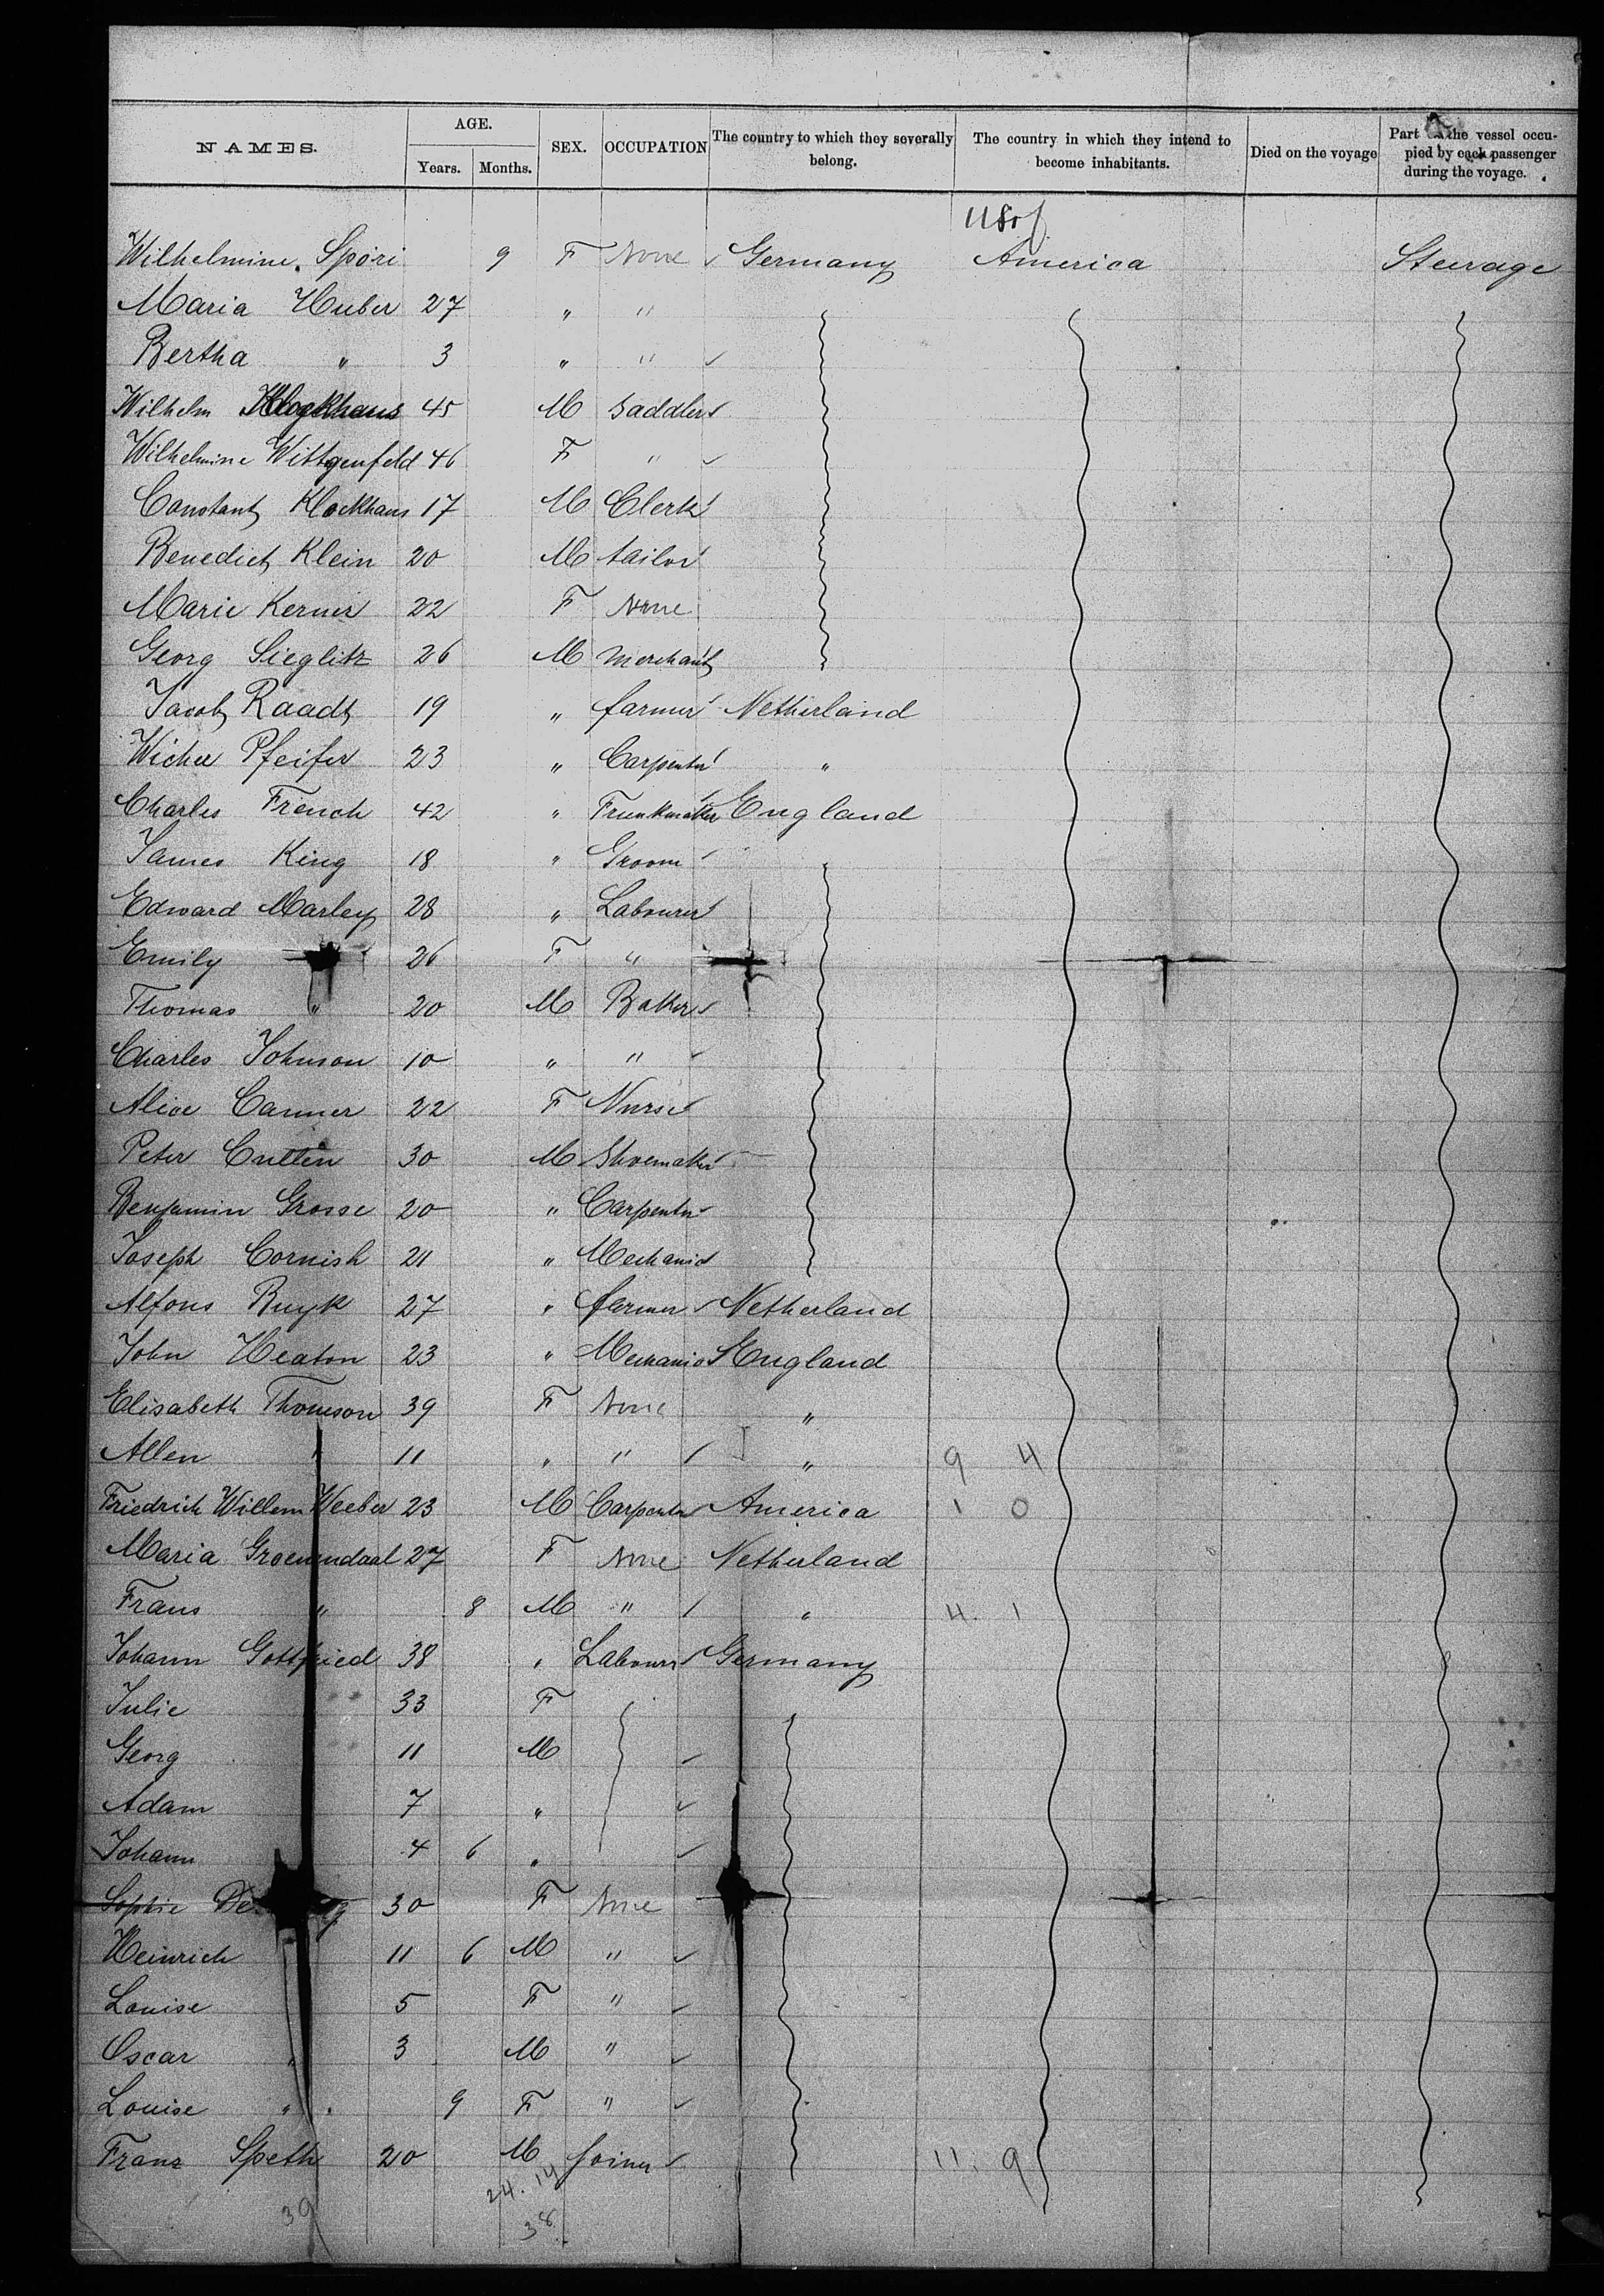 NAMES. AGE. Years. Months. SEX. OCCUPATION The country to which they severally belong. The country in which they intend to become inhabitants. Died on the voyage Part the vessel occupied by each passenger during the voyage.
US of
Wilhelmine Spöri 9 F None Germany America Steerage
Maria Huber 27 " "
Bertha " 3 " "
Wilhelm Klockhaus 45 M Saddler
Wilhelmine Wittgenfeld 46 F "
Constant Klockhaus 17 M Clerk
Benedict Klein 20 M tailor
Marie Kerner 22 F None
Georg Sieglitz 26 M merchant
Jacob Raadt 19 " farmer Netherland
Wicher Pfeifer 23 " Carpenter "
Charles French 42 " Trunkmaker England
James King 18 " Groom
Edward Marley 28 " Labourer
Emily 26 F "
Thomas " 20 M Baker
Charles Johnson 10 " "
Alice Canner 22 F Nurse
Peter Cullen 30 M Shoemaker
Benjamin Grosse 20 " Carpenter
Joseph Cornish 21 " Mechanic
Alfons Buyk 27 " farmer Netherland
John Heaton 23 " Mechanic England
Elisabeth Thomson 39 F None "
Allen " 11 " " " 9 4
Friedrich Willem Weeber 23 M Carpenter America 1 0
Maria Groenendaal 27 F None Netherland
Frans " 8 M " " 4. 1
Johann Gottfried 38 " Labourer Germany
Julie 33 F
Georg 11 M
Adam 7 "
Johann 4 6 "
Sophie De 30 F None
Heinrich 11 6 M "
Louise 5 F "
Oscar " 3 M "
Louise " 9 F "
Franz Speth 20 M Joiner 11. 9
39 24. 14
38